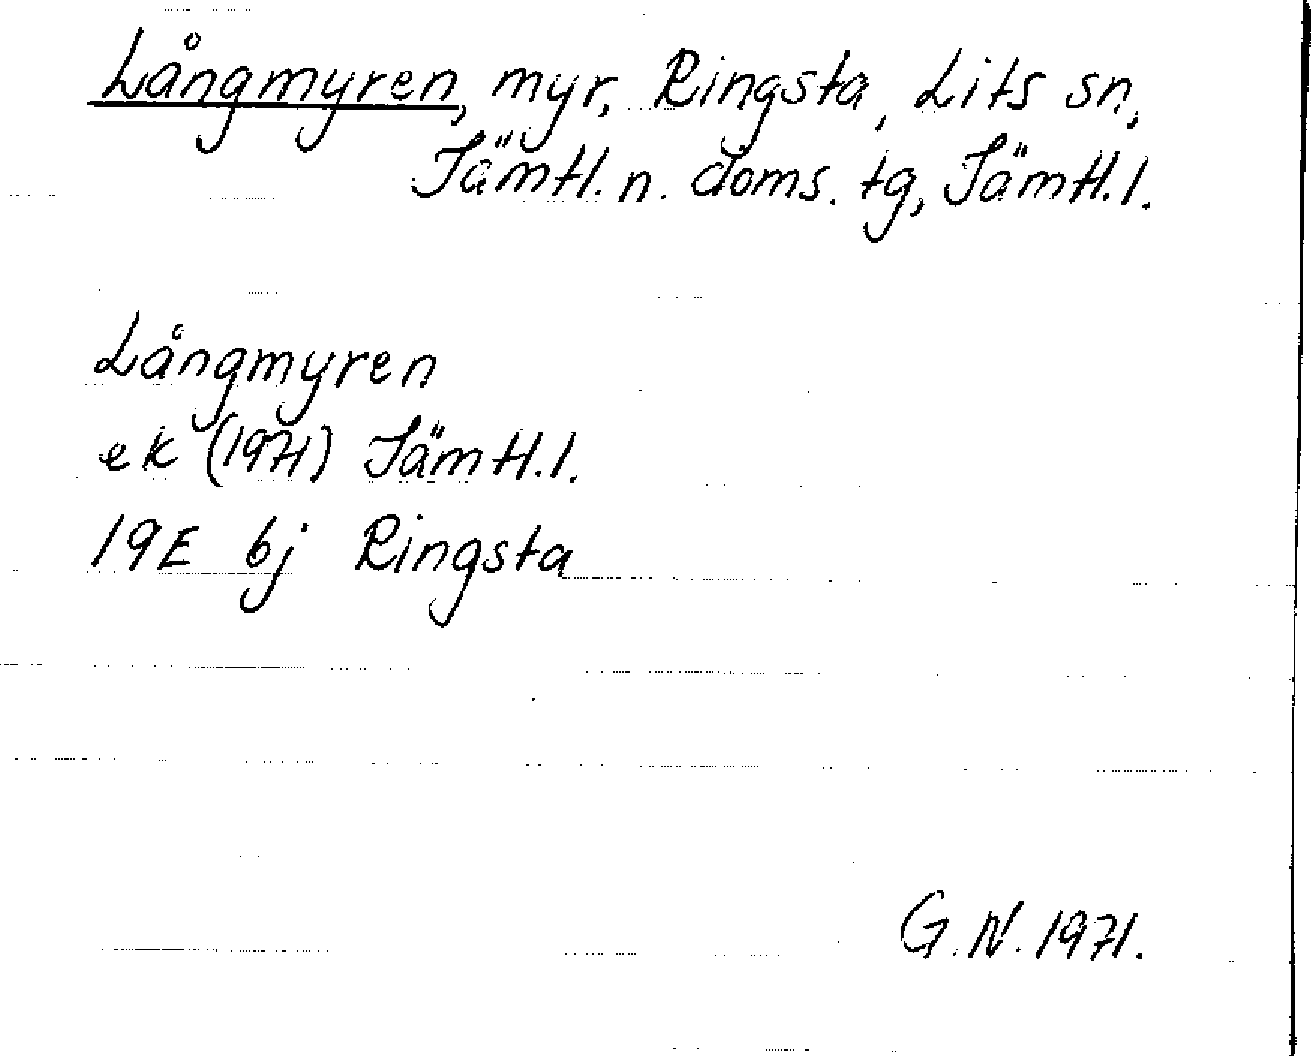 Långmyren, myr, Ringsta, Lits sn,
Jämtl. n. doms. tg, Jämtl. l.
Långmyren
ek (1971) Jämtl. l.
19E 6j Ringsta
G. N. 1971.